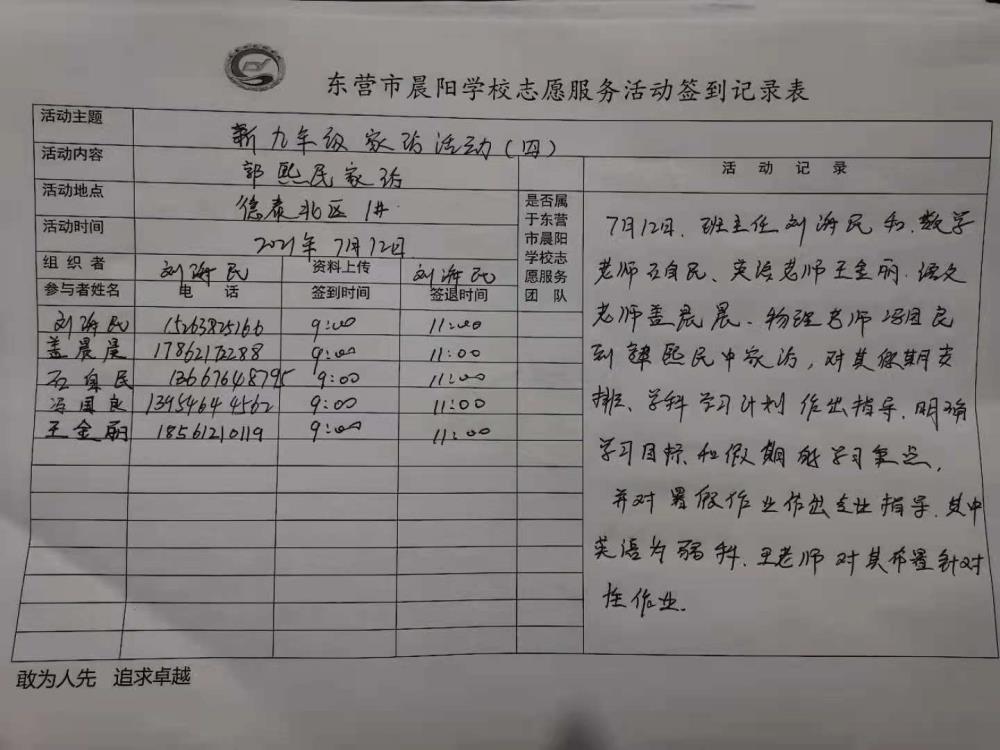 东营市晨阳学校志愿服务活动签到记录表
活动主题 新九年级家访活动(四)
活动内容 郭熙民家访
活动地点 德泰北区 1#
活动时间 2021年7月12日
组织者 刘海民 资料上传 刘海民
参与者姓名 电话 签到时间 签退时间
是否属
于东营
市晨阳
学校志
愿服务
团队
刘海民 15263825166 9:00 11:00
盖晨晨 17862172288 9:00 11:00
石自民 13667648795 9:00 11:00
冯国良 13954644562 9:00 11:00
王金丽 18561210119 9:00 11:00
活动记录
7月12日、班主任刘海民和、数学
老师石自民、英语老师王金丽、语文
老师盖晨晨、物理老师冯国良
到 熙民中家访,对其假期安
排、学科学习计划作出指导,明确
学习目标和假期 学习重点,
并对暑假作业作出 指导,其中
英语为弱科,王老师对其布置针对
性作业.
敢为人先 追求卓越